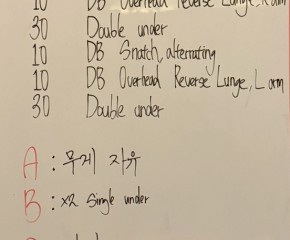 10 DB Overhead Reverse Lunge, R arm
30 Double under
10 DB Snatch, alternating
10 DB Overhead Reverse Lunge, L arm
30 Double under
A : 무게 자유
B : x2 Single under